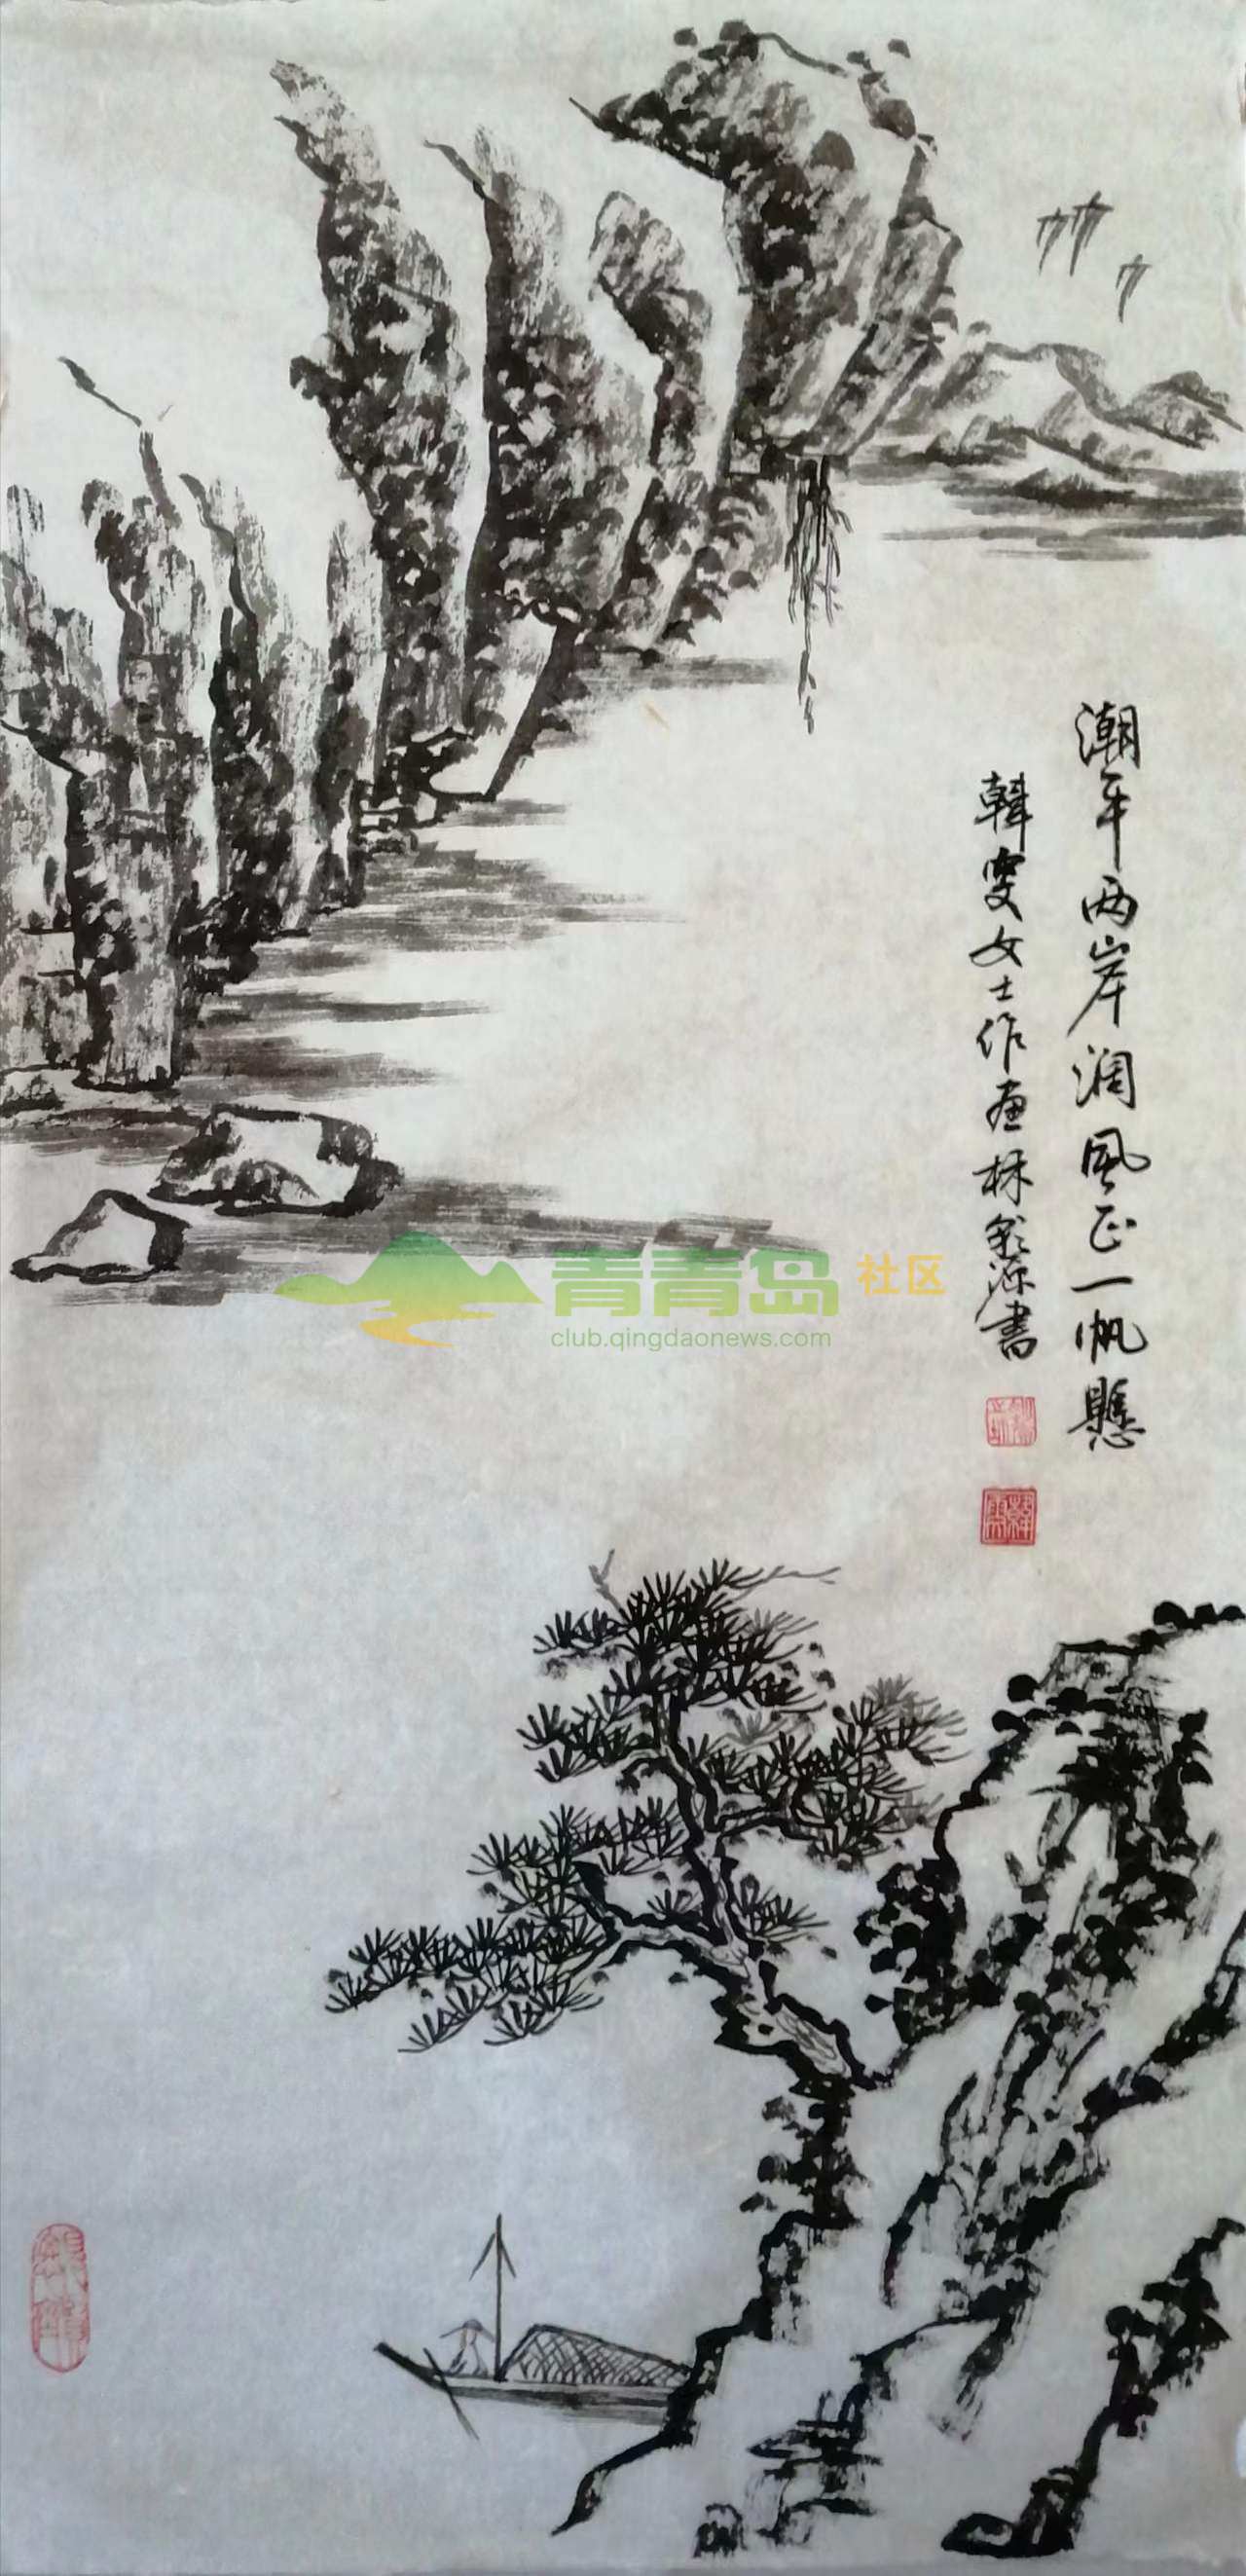 潮平两岸濶風正一帆懸
韓雯女士作画林源書
青青岛社区
club.qingdaonews.com
韓雯